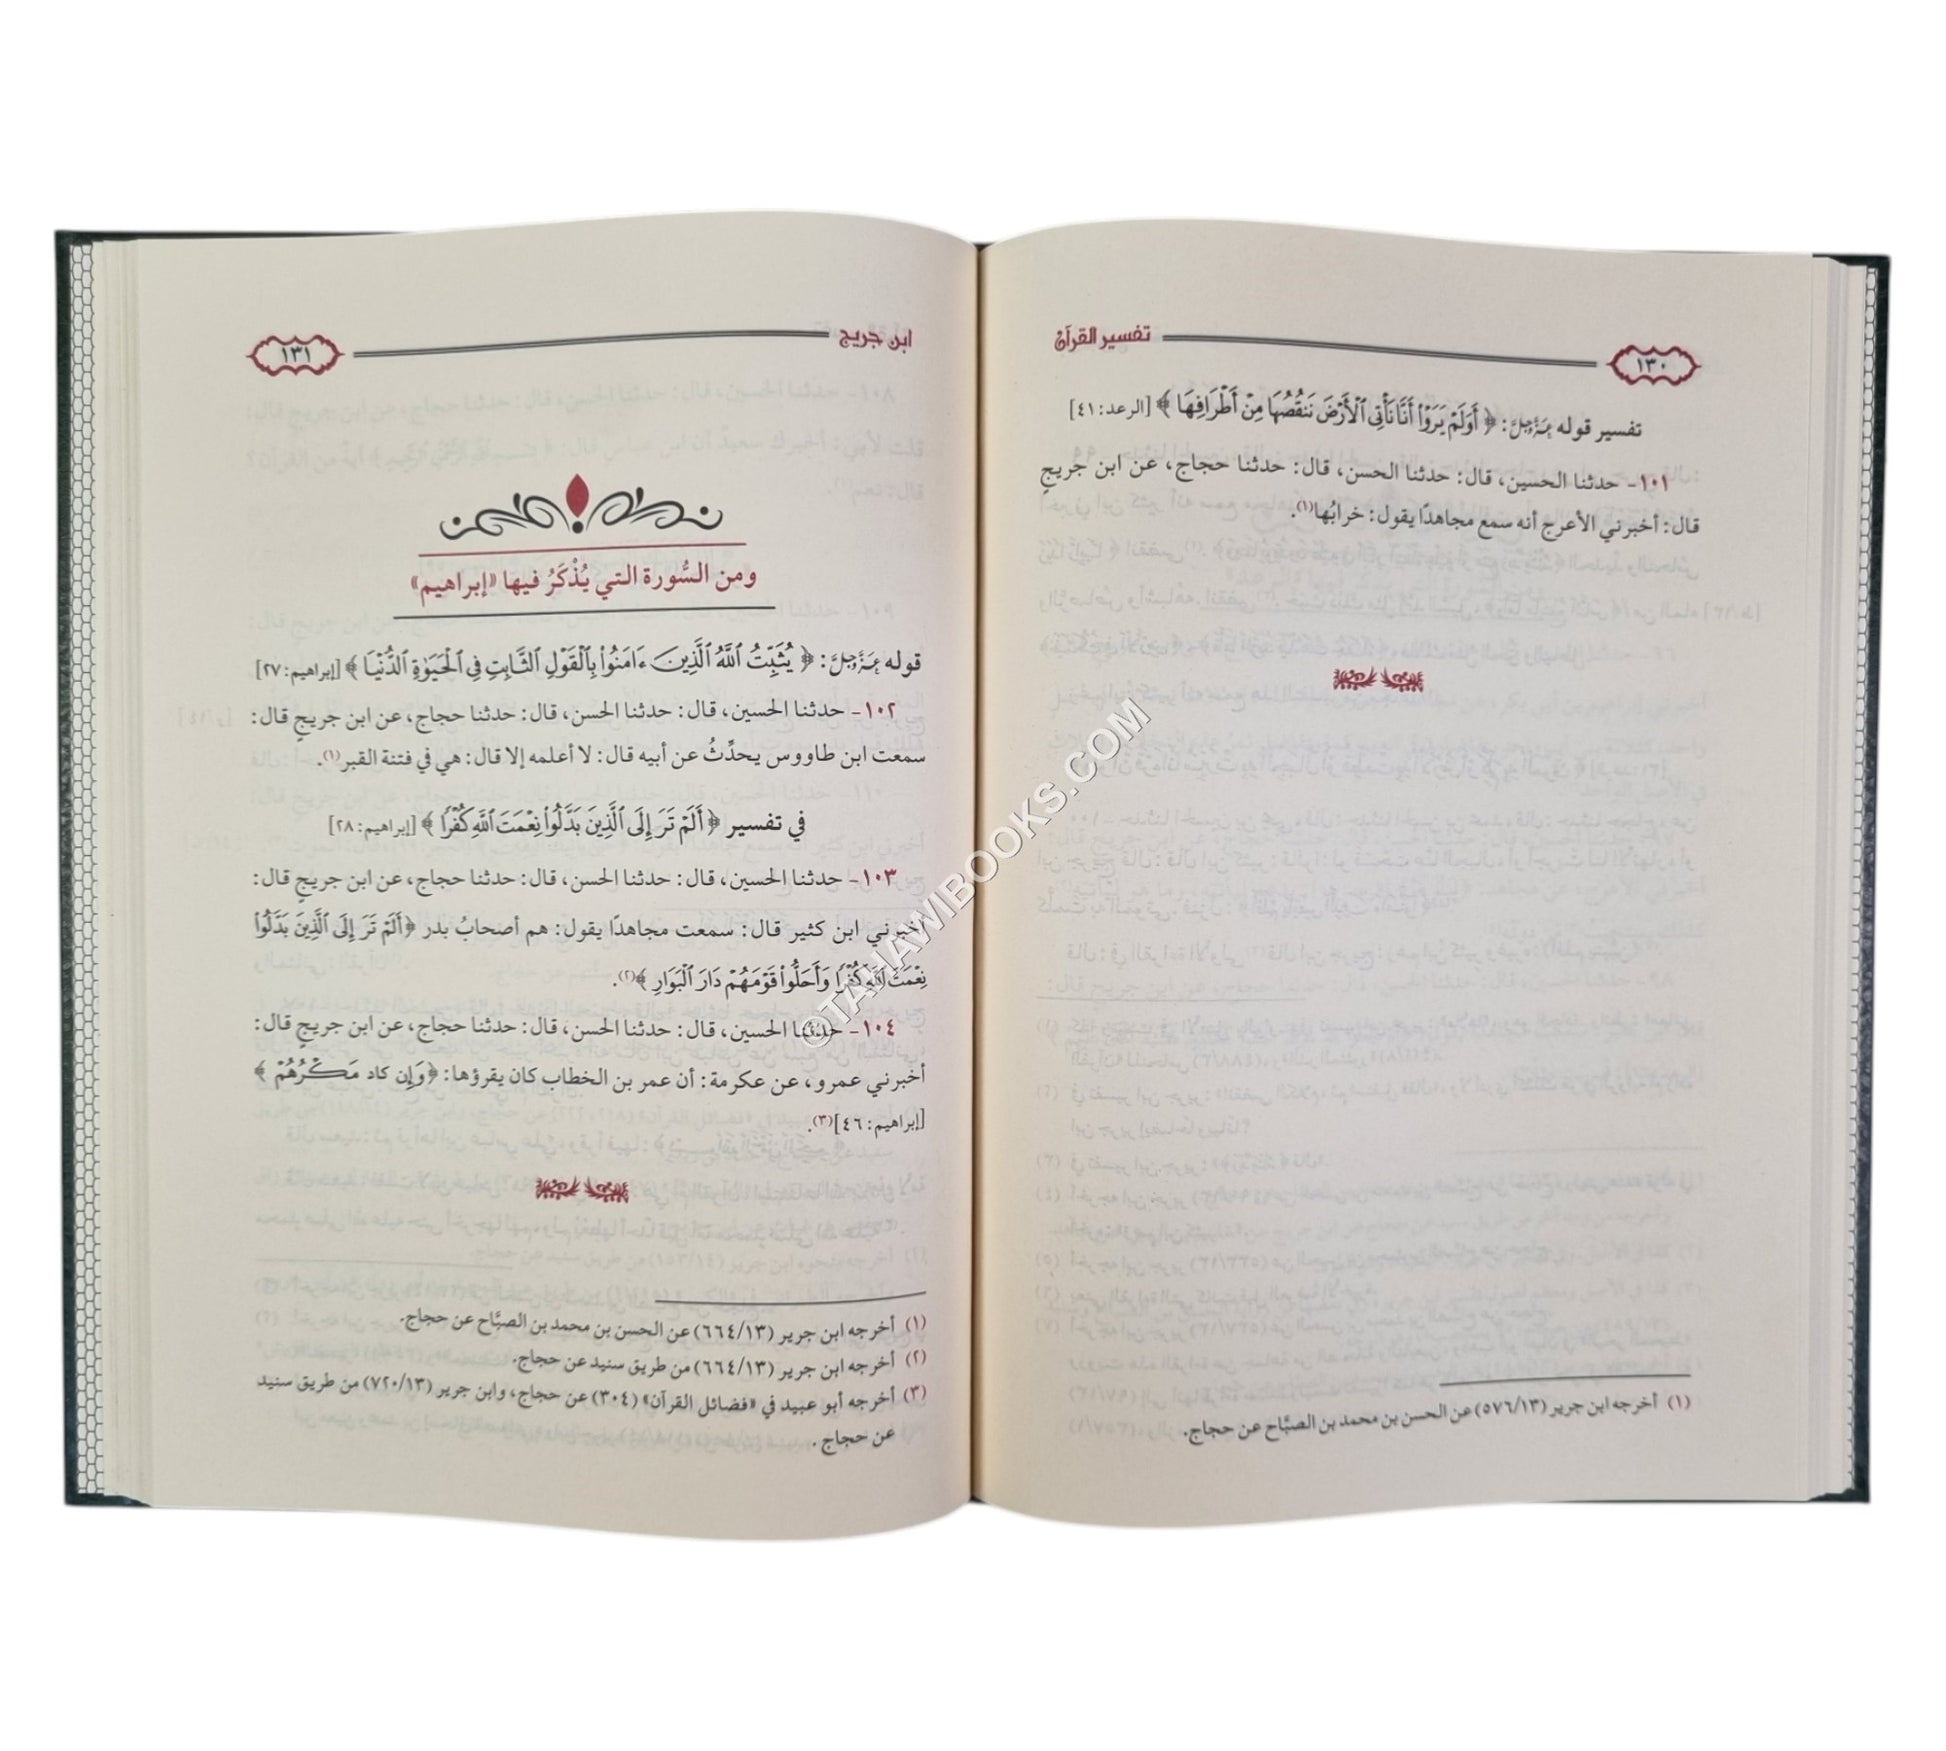 تفسير القرآن
١٣٠
تفسير قوله عَزَّوَجَلَّ: ﴿ أَوَلَمْ يَرَوْا۟ أَنَّا نَأْتِى ٱلْأَرْضَ نَنقُصُهَا مِنْ أَطْرَافِهَا ﴾ [الرعد: ٤١]
١٠١- حدثنا الحسين، قال: حدثنا الحسن، قال: حدثنا حجاج، عن ابن جريجٍ
قال: أخبرني الأعرج أنه سمع مجاهدًا يقول: خرابُها(١).
(١) أخرجه ابن جرير (٥٧٦/١٣) عن الحسن بن محمد بن الصبَّاح عن حجاج.
ابن جريج
١٣١
ومن السُّورة التي يُذْكَرُ فيها «إبراهيم»
قوله عَزَّوَجَلَّ: ﴿ يُثَبِّتُ ٱللَّهُ ٱلَّذِينَ ءَامَنُوا۟ بِٱلْقَوْلِ ٱلثَّابِتِ فِى ٱلْحَيَوٰةِ ٱلدُّنْيَا ﴾ [إبراهيم: ٢٧]
١٠٢- حدثنا الحسين، قال: حدثنا الحسن، قال: حدثنا حجاج، عن ابن جريجٍ قال:
سمعت ابن طاووس يحدِّثُ عن أبيه قال: لا أعلمه إلا قال: هي في فتنة القبر(١).
في تفسير ﴿ أَلَمْ تَرَ إِلَى ٱلَّذِينَ بَدَّلُوا۟ نِعْمَتَ ٱللَّهِ كُفْرًا ﴾ [إبراهيم: ٢٨]
١٠٣- حدثنا الحسين، قال: حدثنا الحسن، قال: حدثنا حجاج، عن ابن جريجٍ قال:
أخبرني ابن كثير قال: سمعت مجاهدًا يقول: هم أصحابُ بدر ﴿أَلَمْ تَرَ إِلَى ٱلَّذِينَ بَدَّلُوا۟
نِعْمَتَ ٱللَّهِ كُفْرًا وَأَحَلُّوا۟ قَوْمَهُمْ دَارَ ٱلْبَوَارِ ﴾(٢).
١٠٤- حدثنا الحسين، قال: حدثنا الحسن، قال: حدثنا حجاج، عن ابن جريجٍ قال:
أخبرني عمرو، عن عكرمة: أن عمر بن الخطاب كان يقرؤها: ﴿وَإِن كاد مَكْرُهُمْ ﴾
[إبراهيم: ٤٦](٣).
(١) أخرجه ابن جرير (٦٦٤/١٣) عن الحسن بن محمد بن الصبَّاح عن حجاج.
(٢) أخرجه ابن جرير (٦٦٤/١٣) من طريق سنيد عن حجاج.
(٣) أخرجه أبو عبيد في «فضائل القرآن» (٣٠٤) عن حجاج، وابن جرير (٧٢٠/١٣) من طريق سنيد
عن حجاج.
©TAHAWIBOOKS.COM